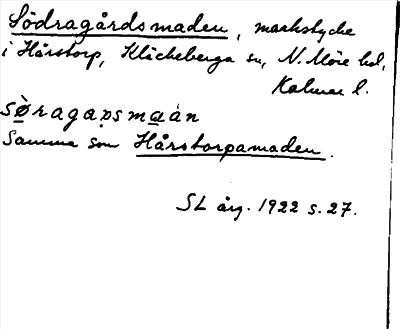 Södragårdsmaden, markstycke
i Hårstorp, Kläckeberga sn, N. Möre hd,
Kalmar l.
sø̀ragaṛsmaán
Samma som Hårstorpamaden.
SL årg. 1922 s. 27.